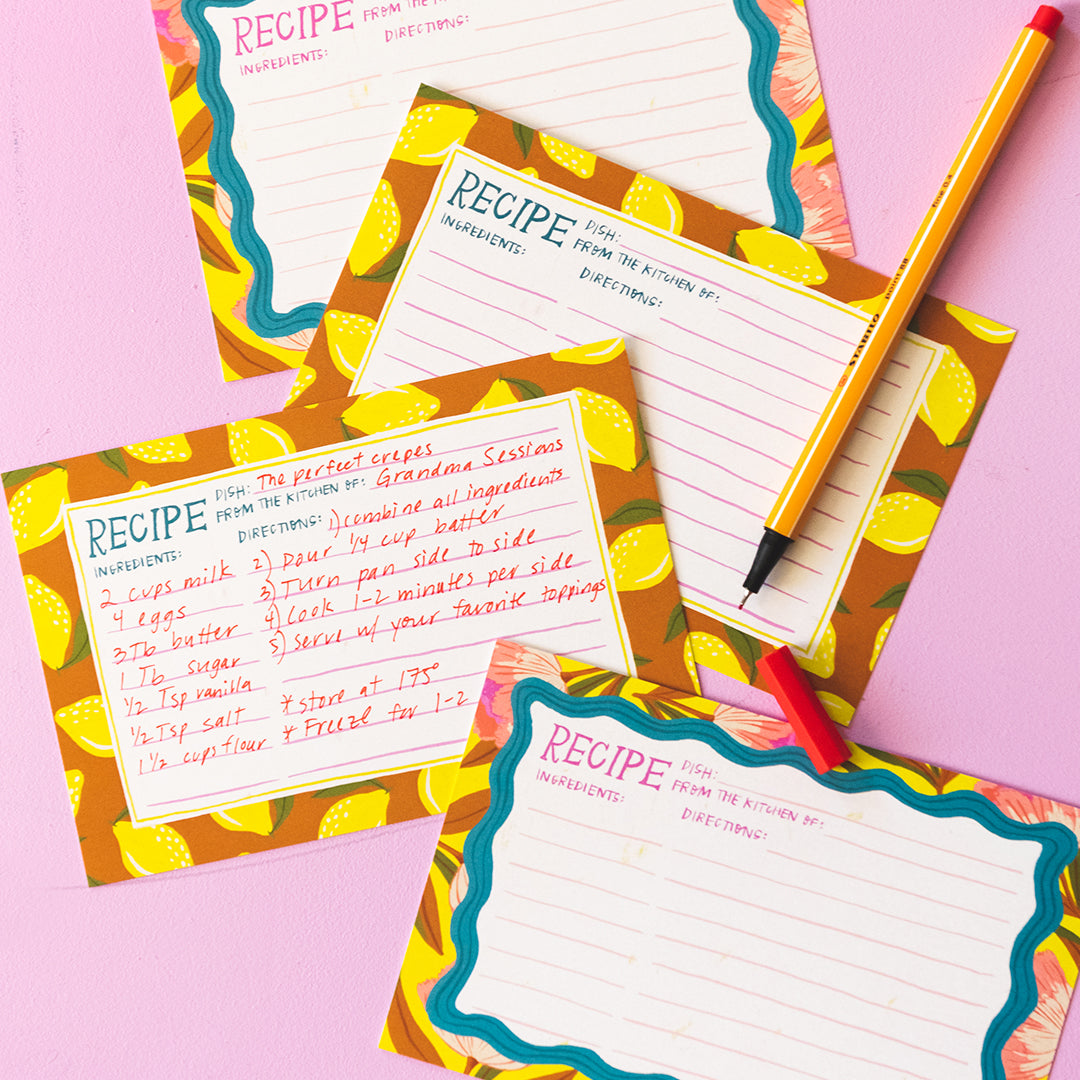 RECIPE
FROM THE
INGREDIENTS:
DIRECTIONS:
RECIPE
DISH:
FROM THE KITCHEN OF:
INGREDIENTS:
DIRECTIONS:
STABILO
Point 88
fine 0.4
RECIPE
DISH: The perfect crepes
FROM THE KITCHEN OF: Grandma Sessions
INGREDIENTS:
2 cups milk
4 eggs
3 Tb butter
1 Tb sugar
1/2 Tsp vanilla
1/2 Tsp salt
1 1/2 cups flour
DIRECTIONS: 1) combine all ingredients
2) Pour 1/4 cup batter
3) Turn pan side to side
4) Cook 1-2 minutes per side
5) Serve w/ your favorite toppings
* store at 175°
* Freeze for 1-2
RECIPE
DISH:
FROM THE KITCHEN OF:
INGREDIENTS:
DIRECTIONS: